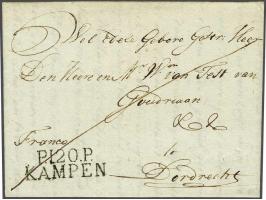 Wel Edele Gebore Gestr: Heer
Den Heere en Mr. Wm van Test van
Goudriaan
& &
Franco te
P.120.P. Dordrecht
KAMPEN